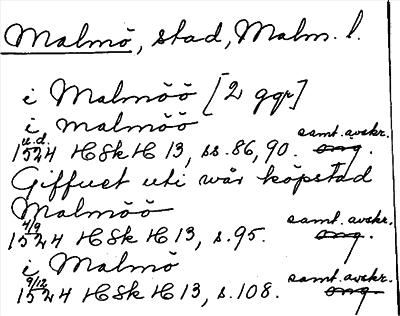 Malmö, stad, Malm. l.
i Malmöö [2 ggr]
i Malmöö
u.d. samt. avskr.
1524 HSkH 13, ss. 86, 90. orig.
Giffuet uti wår köpstad
Malmöö
4/9 samt. avskr.
1524 HSkH 13, s. 95. orig.
i Malmö
9/12 samt. avskr.
1524 HSkH 13, s. 108. orig.